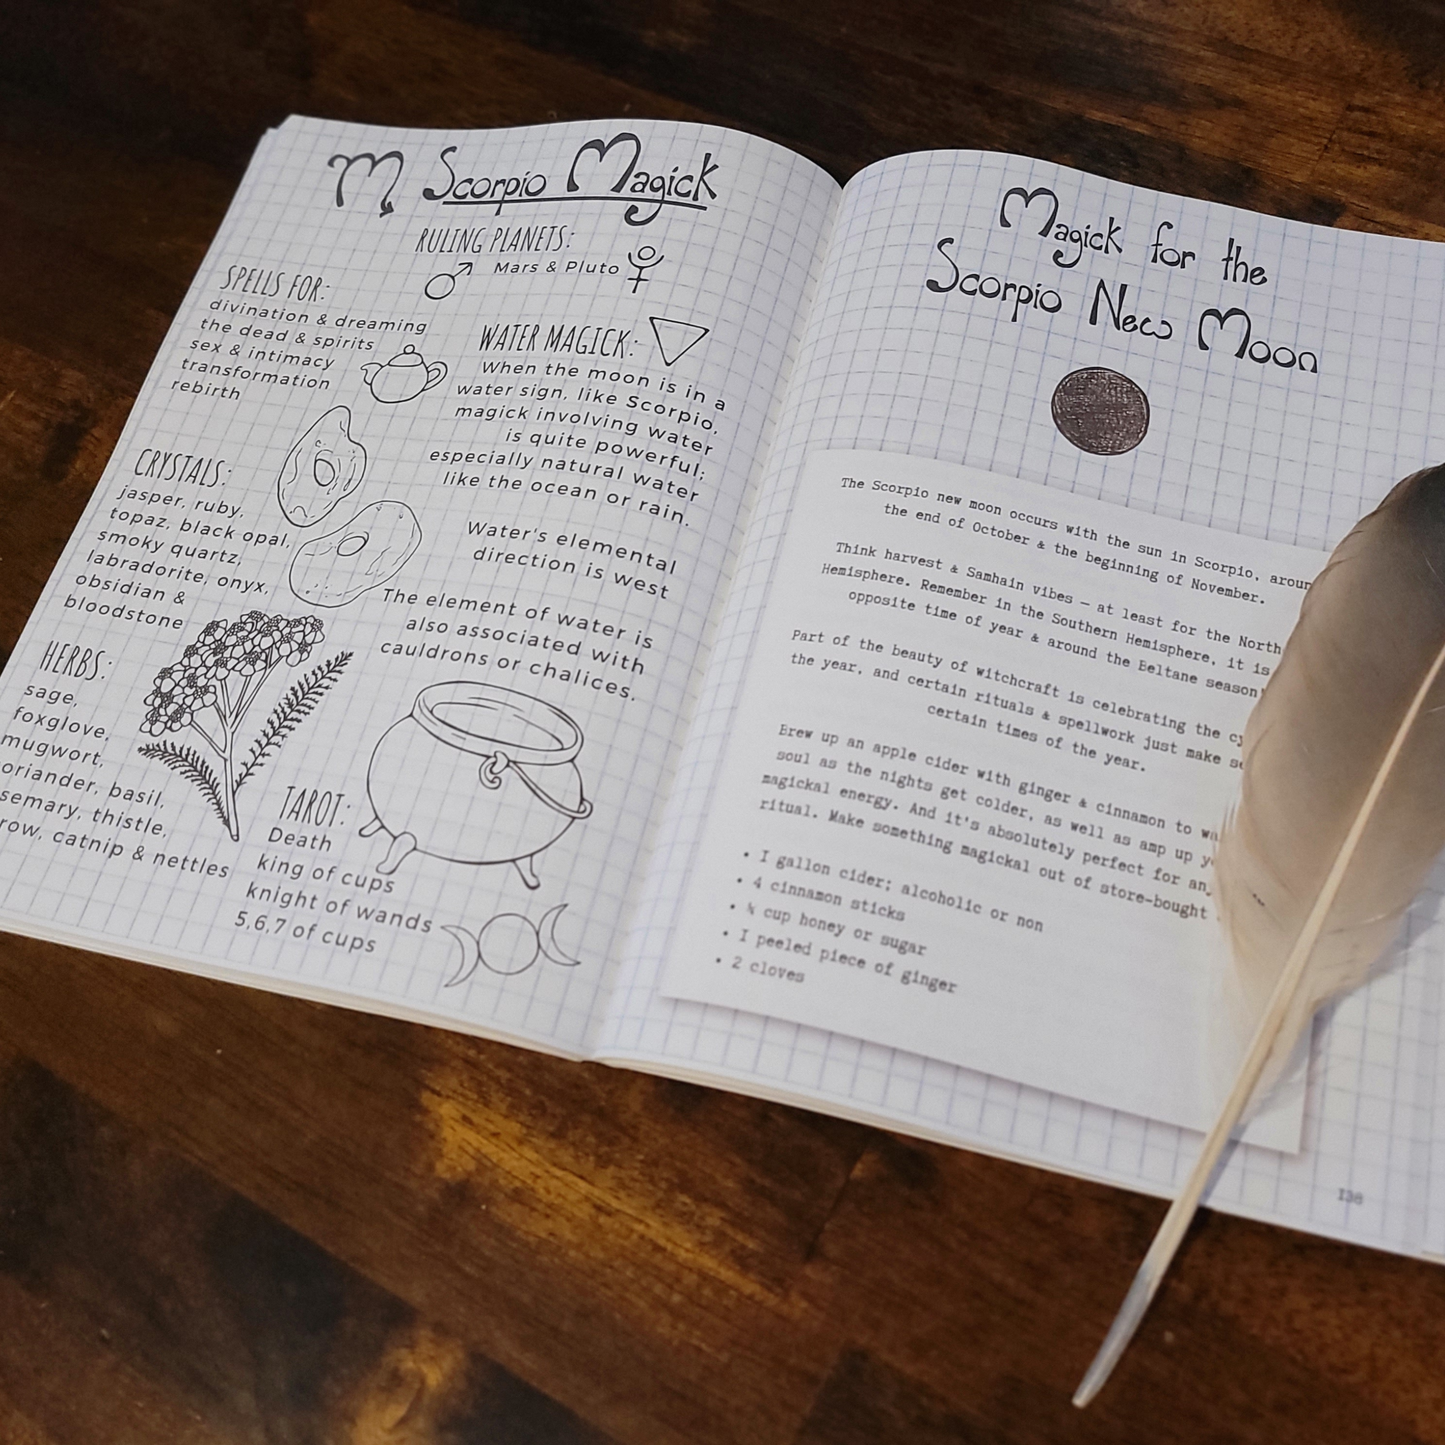 Scorpio Magick
RULING PLANETS:
Mars & Pluto
SPELLS FOR:
divination & dreaming
the dead & spirits
sex & intimacy
transformation
rebirth
CRYSTALS:
jasper, ruby,
topaz, black opal,
smoky quartz,
labradorite, onyx,
obsidian &
bloodstone
HERBS:
sage,
foxglove,
mugwort,
oriander, basil,
semary, thistle,
row, catnip & nettles
WATER MAGICK:
When the moon is in a
water sign, like Scorpio,
magick involving water
is quite powerful;
especially natural water
like the ocean or rain.
Water's elemental
direction is west
The element of water is
also associated with
cauldrons or chalices.
TAROT:
Death
king of cups
knight of wands
5,6,7 of cups
Magick for the
Scorpio New Moon
The Scorpio new moon occurs with the sun in Scorpio, aroun
the end of October & the beginning of November.
Think harvest & Samhain vibes — at least for the North
Hemisphere. Remember in the Southern Hemisphere, it is
opposite time of year & around the Beltane season
Part of the beauty of witchcraft is celebrating the cy
the year, and certain rituals & spellwork just make se
certain times of the year.
Brew up an apple cider with ginger & cinnamon to wa
soul as the nights get colder, as well as amp up y
magickal energy. And it's absolutely perfect for an
ritual. Make something magickal out of store-bought
• I gallon cider; alcoholic or non
• 4 cinnamon sticks
• ¼ cup honey or sugar
• I peeled piece of ginger
• 2 cloves